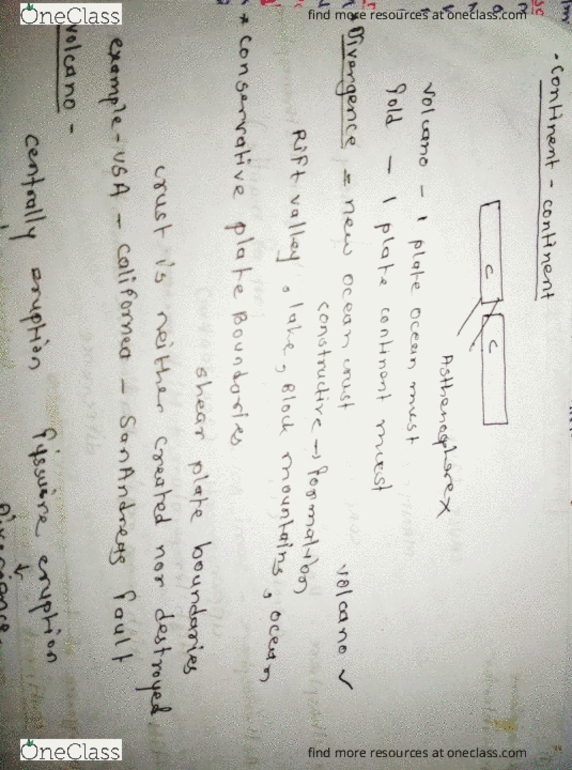 OneClass
find more resources at oneclass.com
- Continent - continent
C
C
Asthenospherex
volcano - 1 plate ocean must
fold - 1 plate continent must
* Divergence = new ocean crust volcano ✓
constructive → formation
Rift valley, lake, Block mountains, ocean
* conservative plate Boundaries
shear plate boundaries
crust is neither created nor destroyed
example - USA - California - San Andreas fault
volcano -
centrally eruption fissure eruption
↓
OneClass
find more resources at oneclass.com